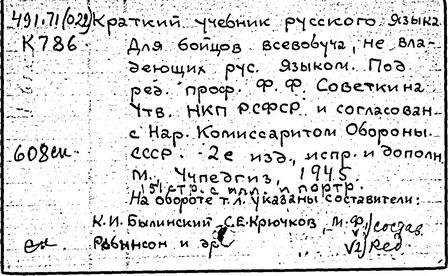 491.71(022) Краткий учебник русского языка.
К786. Для бойцов всевобуча, не вла-
деющих рус. языком. Под
ред. проф. Ф.Ф. Советкина
Утв. НКП РСФСР и согласован-
с Нар. Комиссаритом Обороны-
608ек СССР. 2е изд., испр. и дополн
М., Учпедгиз, 1945.
151 стр. с илл. и портр.
На обороте т.л. указаны составители:
К.И. Былинский, С.Е. Крючков, М.Ф./состав.
ек Рабинсон и др. √2/Ред.